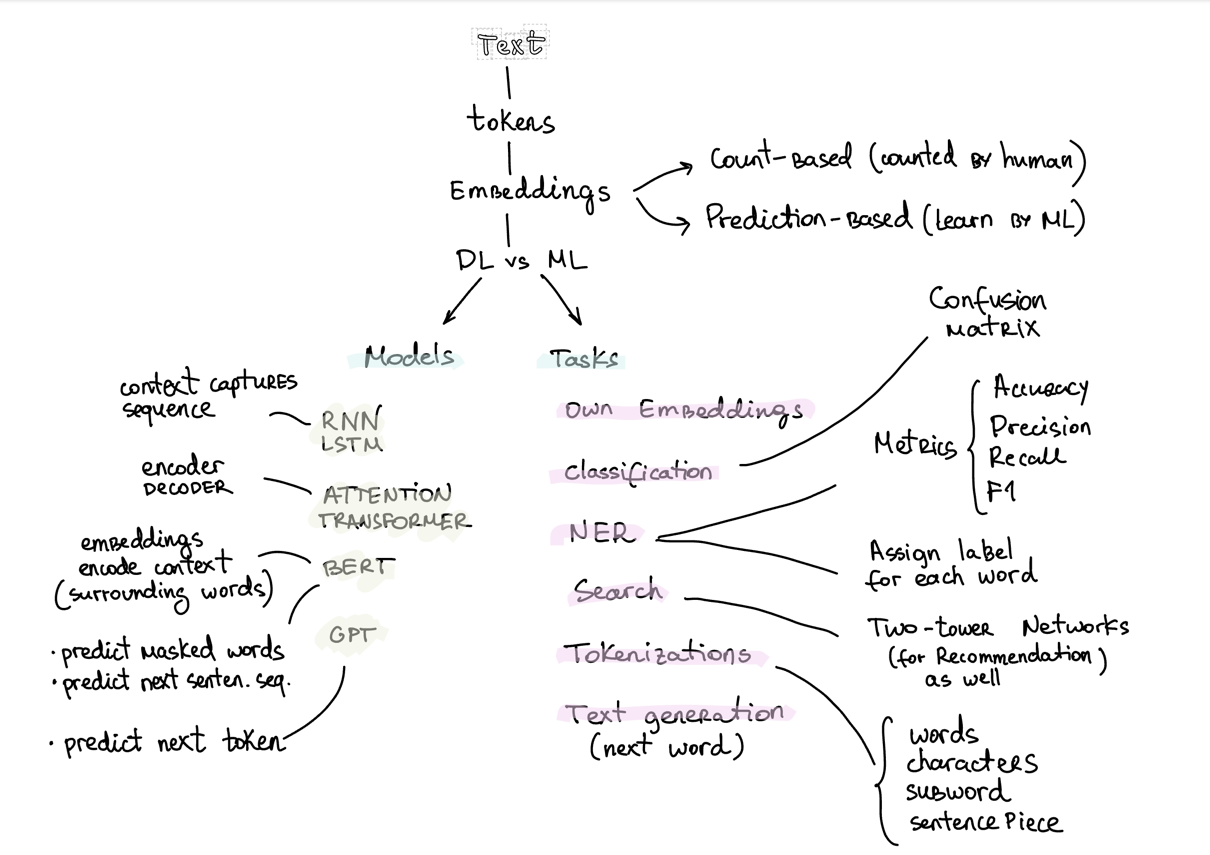 Text
tokens
Embeddings
Count-Based (counted by human)
Prediction-Based (Learn by ML)
DL vs ML
Models
context captures
sequence
RNN
LSTM
encoder
DECODER
ATTENTION
TRANSFORMER
embeddings
encode context
(surrounding words)
BERT
GPT
• predict masked words
• predict next senten. seq.
• predict next token
Tasks
Own Embeddings
Classification
NER
Search
Tokenizations
Text generation
(next word)
Confusion
Matrix
Metrics
Accuracy
Precision
Recall
F1
Assign label
for each word
Two-tower Networks
(for Recommendation)
as well
words
characters
subword
sentence Piece